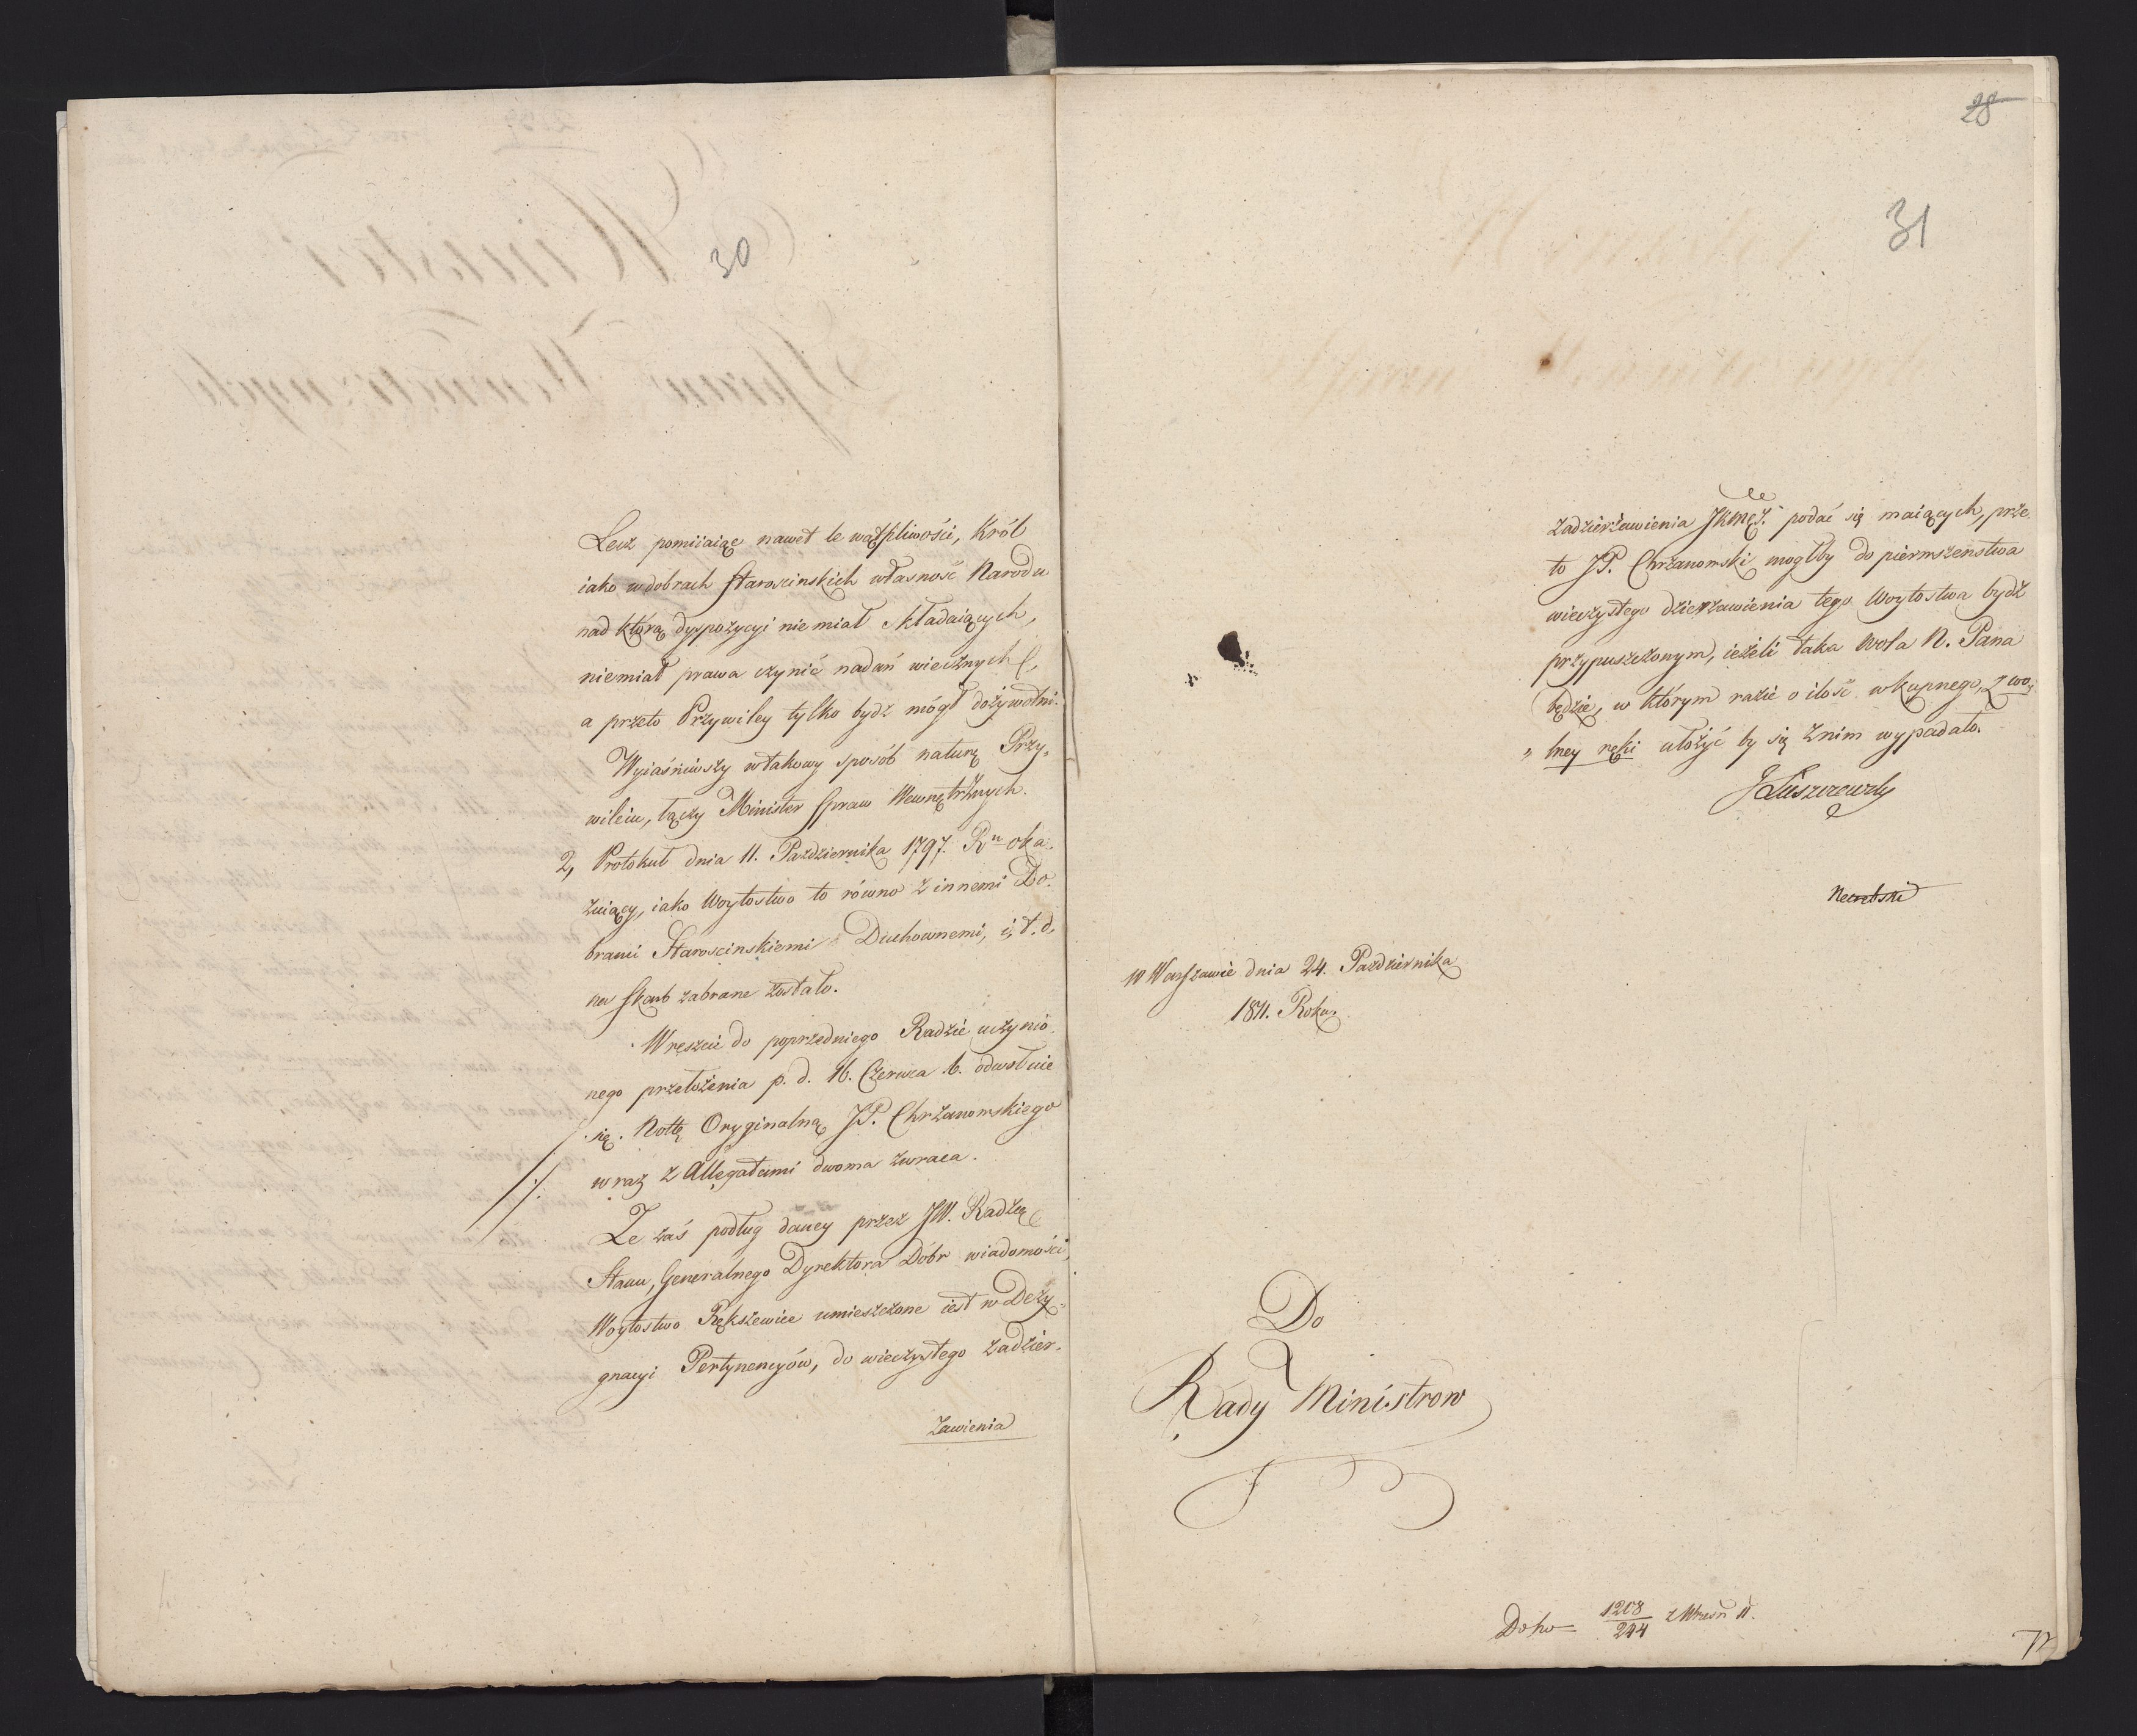 30
Lecz pomiiaiąc nawet te wątpliwości, Król
iako w dobrach Staroscinskich własność Narodu
nad którą dyspozycyi nie miał składaiących,
niemiał prawa czynić nadań wiecznych,
a przeto Przywiley tylko bydź mógł dożywotni.
Wyiaśniwszy w takowy sposób naturę Przy„
wileiu, łączy Minister Spraw Wewnętrznych.
2, Protokuł dnia 11. Października 1797. Ru oka„
zuiący, iako Woytostwo to równo z innemi Do„
brami Staroscinskiemi Duchownemi, i, t. d,
na Skarb zabrane zostało.
Wreszcie do poprzedniego Radzie uczynio„
nego przełożenia p. d. 16. Czerwca b. odwołuie
się. Nottę Oryginalną JP. Chrzanowskiego
wraz z Allegatami dwoma zwraca.
Ze zaś podług daney przez JW. Radzcę
Stanu, Generalnego Dyrektora Dóbr wiadomości,
Woytostwo Rększewice umieszczone iest w Dezy„
gnacyi Pertynencyów, do wieczystego zadzier„
żawienia
28
31
zadzierżawienia JKMci podać się maiących, prze
to JP. Chrzanowski mogłby do pierwszenstwa
wieczystego dzierżawienia tego Woytostwa bydź
przypuszczonym, ieżeli taka Wola N. Pana
będzie, w którym razie o ilość wkupnego, z wo„
„lney ręki ułożyć by się z nim wypadało.
JŁuszczewsky
w Warszawie dnia 24. Października
1811. Roku.
Do
Rady Ministrow
1208
244